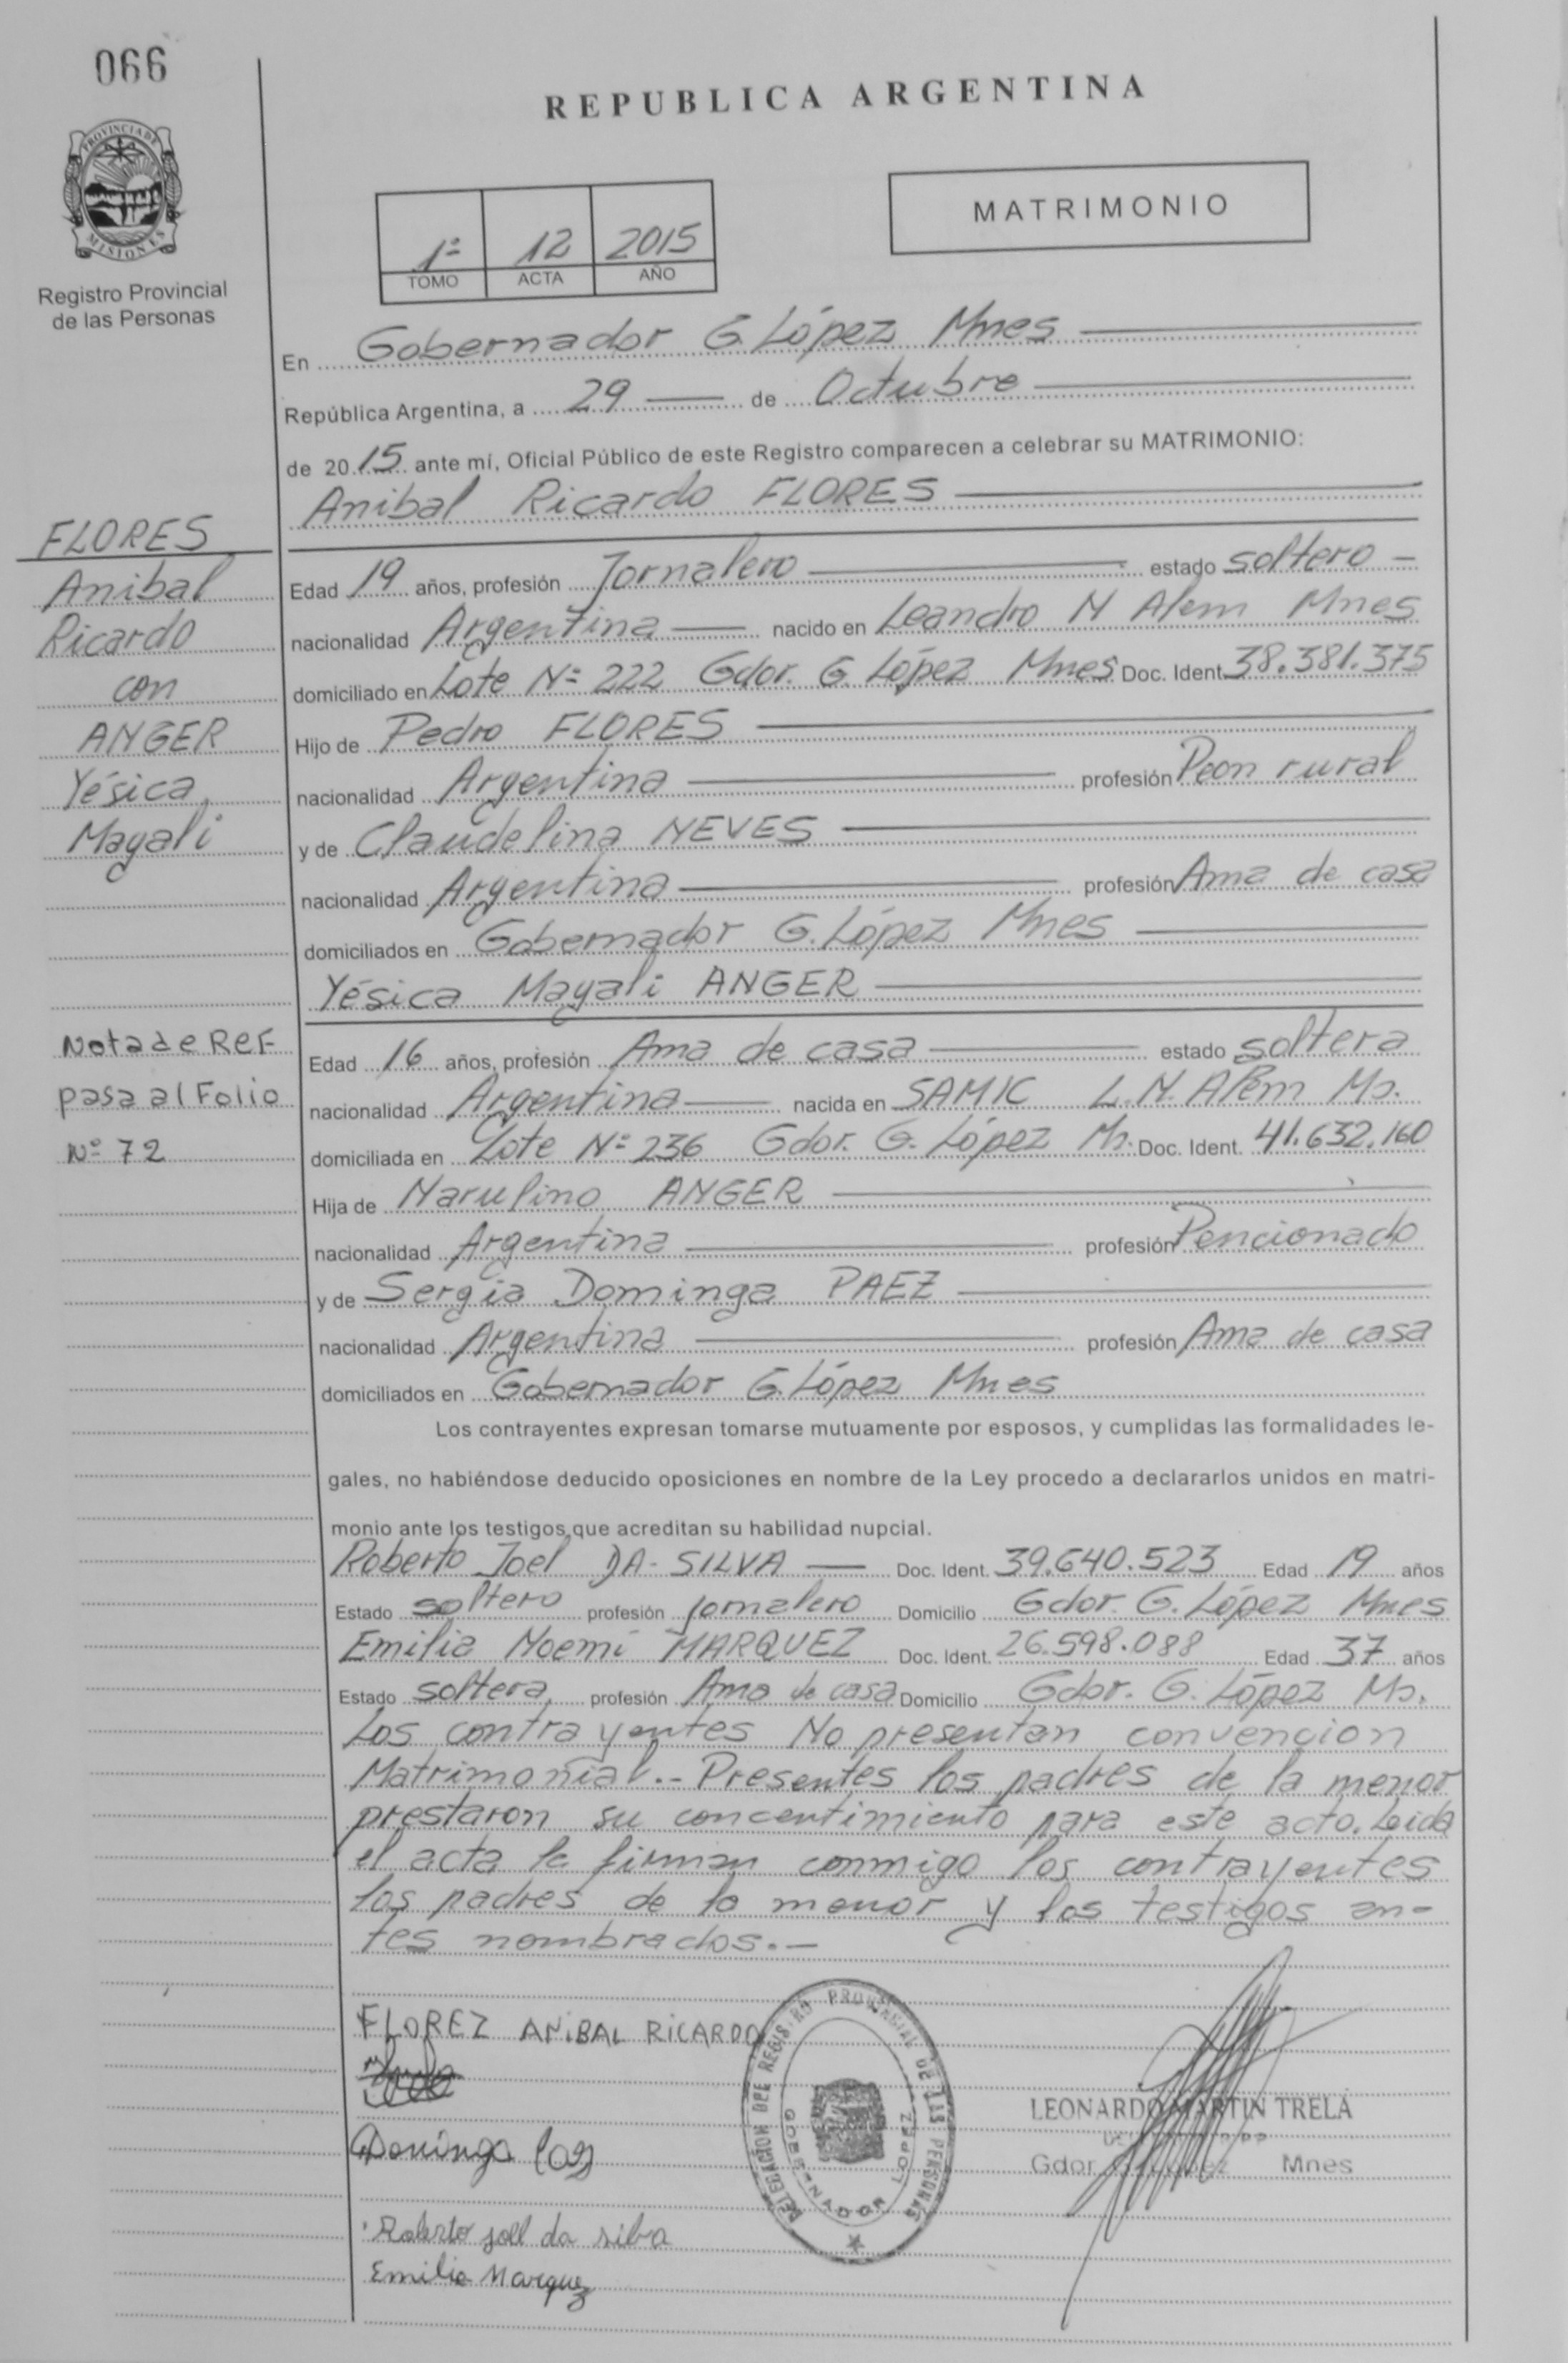 066
REPUBLICA ARGENTINA
PROVINCIA DE
MISIONES
Registro Provincial
de las Personas
1º 12 2015
TOMO ACTA AÑO
MATRIMONIO
En Gobernador G. López Mnes
República Argentina, a 29 de Octubre
de 2015 ante mí, Oficial Público de este Registro comparecen a celebrar su MATRIMONIO:
Anibal Ricardo FLORES
FLORES
Anibal
Ricardo
con
ANGER
Yésica
Magali
Edad 19 años, profesión Jornalero estado soltero -
nacionalidad Argentina nacido en Leandro N Alem Mnes
domiciliado en Lote Nº 222 Gdor. G. López Mnes Doc. Ident. 38.381.375
Hijo de Pedro FLORES
nacionalidad Argentina profesión Peon rural
y de Claudelina NEVES
nacionalidad Argentina profesión Ama de casa
domiciliados en Gobernador G. López Mnes
Yésica Magali ANGER
Nota de Ref
pasa al Folio
Nº 72
Edad 16 años, profesión Ama de casa estado soltera
nacionalidad Argentina nacida en SAMIC L.N. Alem Ms.
domiciliada en Lote Nº 236 Gdor. G. López Ms. Doc. Ident. 41.632.160
Hija de Marulino ANGER
nacionalidad Argentina profesión Pencionado
y de Sergia Dominga PAEZ
nacionalidad Argentina profesión Ama de casa
domiciliados en Gobernador G. López Mnes
Los contrayentes expresan tomarse mutuamente por esposos, y cumplidas las formalidades le-
gales, no habiéndose deducido oposiciones en nombre de la Ley procedo a declararlos unidos en matri-
monio ante los testigos que acreditan su habilidad nupcial.
Roberto Joel DA-SILVA Doc. Ident. 39.640.523 Edad 19 años
Estado soltero profesión jornalero Domicilio Gdor. G. López Mnes
Emilia Noemi MARQUEZ Doc. Ident. 26.598.088 Edad 37 años
Estado soltera profesión Ama de casa Domicilio Gdor. G. López Ms.
Los contrayentes No presentan convencion
Matrimonial.- Presentes los padres de la menor
prestaron su concentimiento para este acto. Leida
el acta la firman conmigo los contrayentes
los padres de la menor y los testigos an-
tes nombrados.-
FLOREZ ANIBAL RICARDO
Dominga
Roberto joel da silva
Emilia Marquez
DELEGACION DEL REGISTRO PROVINCIAL DE LAS PERSONAS
GOBERNADOR LOPEZ
LEONARDO MARTIN TRELA
Gdor. López Mnes